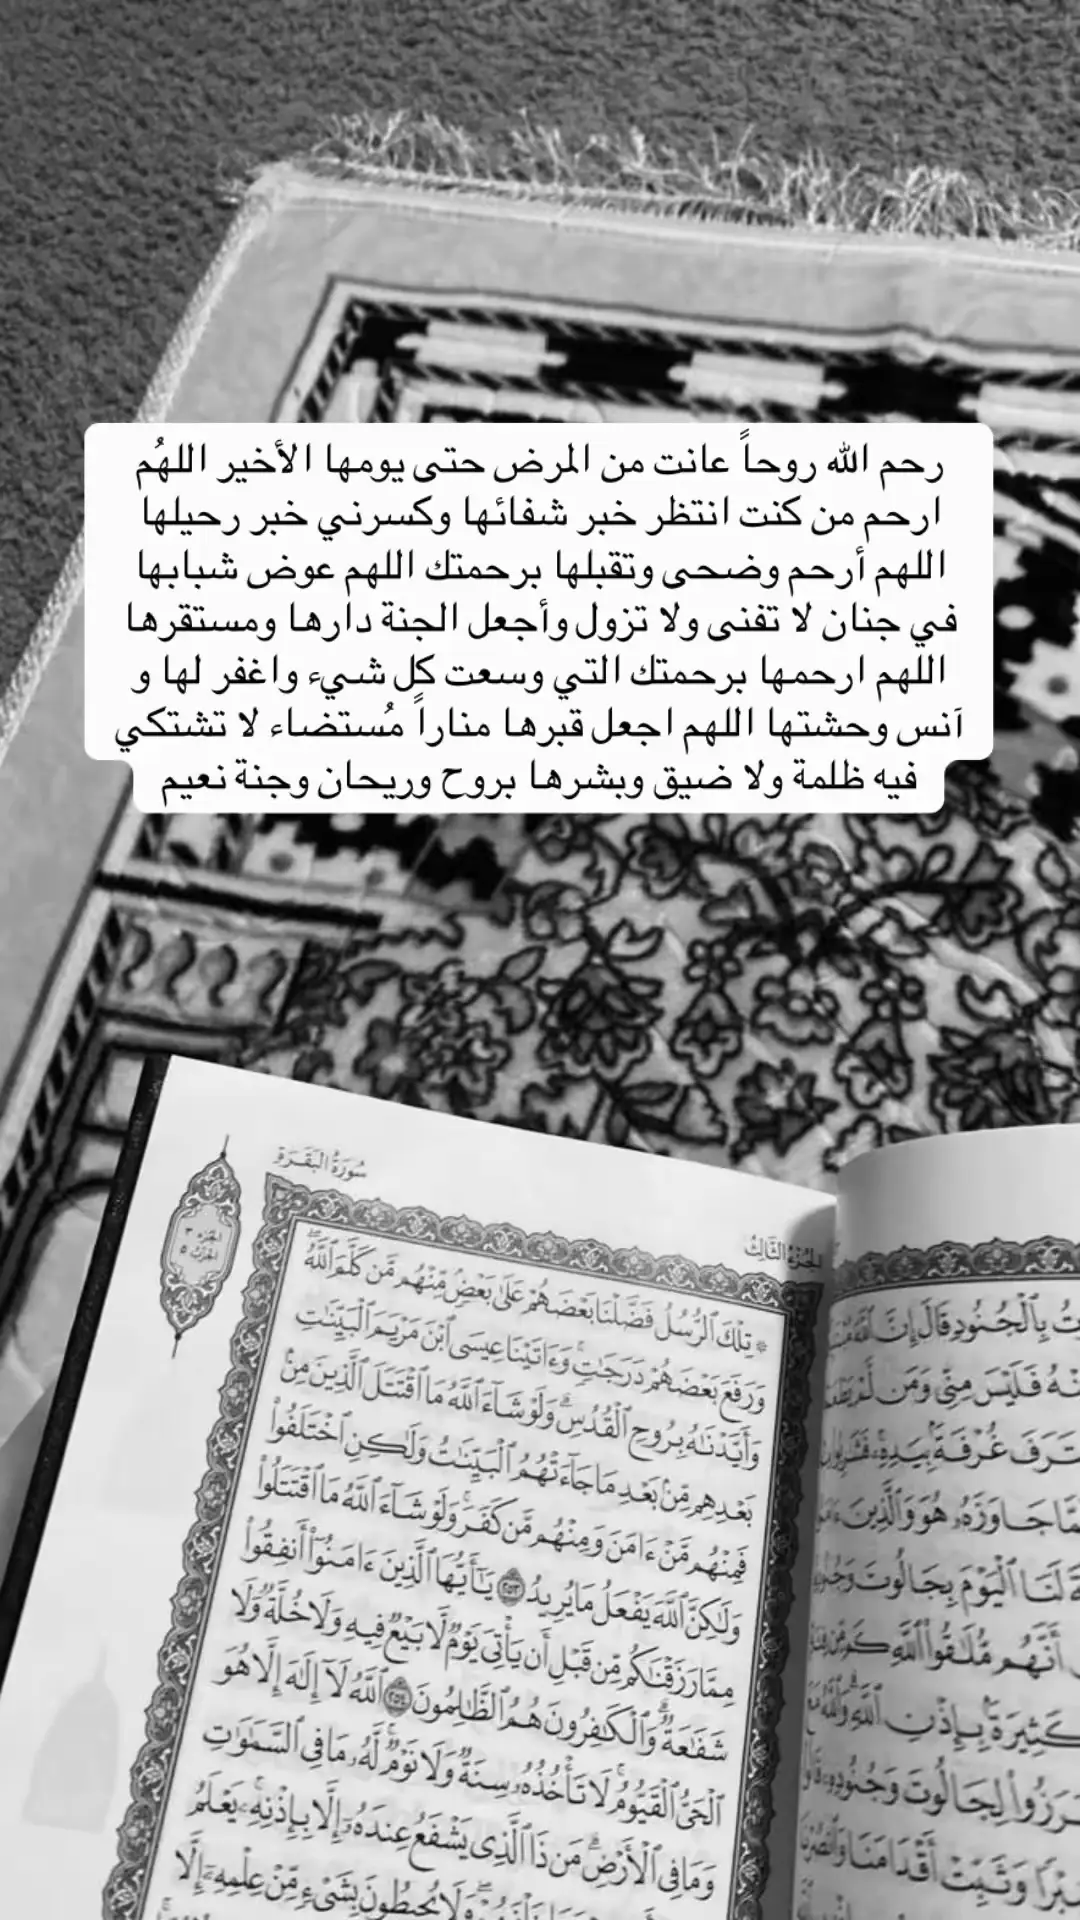 رحم الله روحاً عانت من المرض حتى يومها الأخير اللهُم
ارحم من كنت انتظر خبر شفائها وكسرني خبر رحيلها
اللهم أرحم وضحى وتقبلها برحمتك اللهم عوض شبابها
في جنان لا تفنى ولا تزول وأجعل الجنة دارها ومستقرها
اللهم ارحمها برحمتك التي وسعت كل شيء واغفر لها و
آنس وحشتها اللهم اجعل قبرها مناراً مُستضاء لا تشتكي
فيه ظلمة ولا ضيق وبشرها بروح وريحان وجنة نعيم
سُورَةُ البَقَرَةِ
الجُزءُ الثَّالِثُ
الجزء ٣
الحزب ٥
۞ تِلْكَ ٱلرُّسُلُ فَضَّلْنَا بَعْضَهُمْ عَلَىٰ بَعْضٍ مِّنْهُم مَّن كَلَّمَ ٱللَّهُ
وَرَفَعَ بَعْضَهُمْ دَرَجَٰتٍ وَءَاتَيْنَا عِيسَى ٱبْنَ مَرْيَمَ ٱلْبَيِّنَٰتِ
وَأَيَّدْنَٰهُ بِرُوحِ ٱلْقُدُسِ وَلَوْ شَآءَ ٱللَّهُ مَا ٱقْتَتَلَ ٱلَّذِينَ مِنۢ
بَعْدِهِم مِّنۢ بَعْدِ مَا جَآءَتْهُمُ ٱلْبَيِّنَٰتُ وَلَٰكِنِ ٱخْتَلَفُوا۟
فَمِنْهُم مَّنْ ءَامَنَ وَمِنْهُم مَّن كَفَرَ وَلَوْ شَآءَ ٱللَّهُ مَا ٱقْتَتَلُوا۟
وَلَٰكِنَّ ٱللَّهَ يَفْعَلُ مَا يُرِيدُ ٢٥٣ يَٰٓأَيُّهَا ٱلَّذِينَ ءَامَنُوٓا۟ أَنفِقُوا۟
مِمَّا رَزَقْنَٰكُم مِّن قَبْلِ أَن يَأْتِىَ يَوْمٌ لَّا بَيْعٌ فِيهِ وَلَا خُلَّةٌ وَلَا
شَفَٰعَةٌ وَٱلْكَٰفِرُونَ هُمُ ٱلظَّٰلِمُونَ ٢٥٤ ٱللَّهُ لَآ إِلَٰهَ إِلَّا هُوَ
ٱلْحَىُّ ٱلْقَيُّومُ لَا تَأْخُذُهُۥ سِنَةٌ وَلَا نَوْمٌ لَّهُۥ مَا فِى ٱلسَّمَٰوَٰتِ
وَمَا فِى ٱلْأَرْضِ مَن ذَا ٱلَّذِى يَشْفَعُ عِندَهُۥٓ إِلَّا بِإِذْنِهِۦ يَعْلَمُ
وَلَا يُحِيطُونَ بِشَىْءٍ مِّنْ عِلْمِهِۦٓ إِلَّا
بِٱلْجُنُودِ قَالَ إِنَّ ٱللَّهَ
فَلَيْسَ مِنِّى وَمَن لَّمْ
غُرْفَةًۢ بِيَدِهِۦ
جَاوَزَهُۥ هُوَ وَٱلَّذِينَ
لَنَا ٱلْيَوْمَ بِجَالُوتَ
أَنَّهُم مُّلَٰقُوا۟ ٱللَّهِ كَم مِّن
كَثِيرَةًۢ بِإِذْنِ ٱللَّهِ وَٱللَّهُ مَعَ
لِجَالُوتَ وَجُنُودِهِۦ
وَثَبِّتْ أَقْدَامَنَا وَٱنصُرْنَا